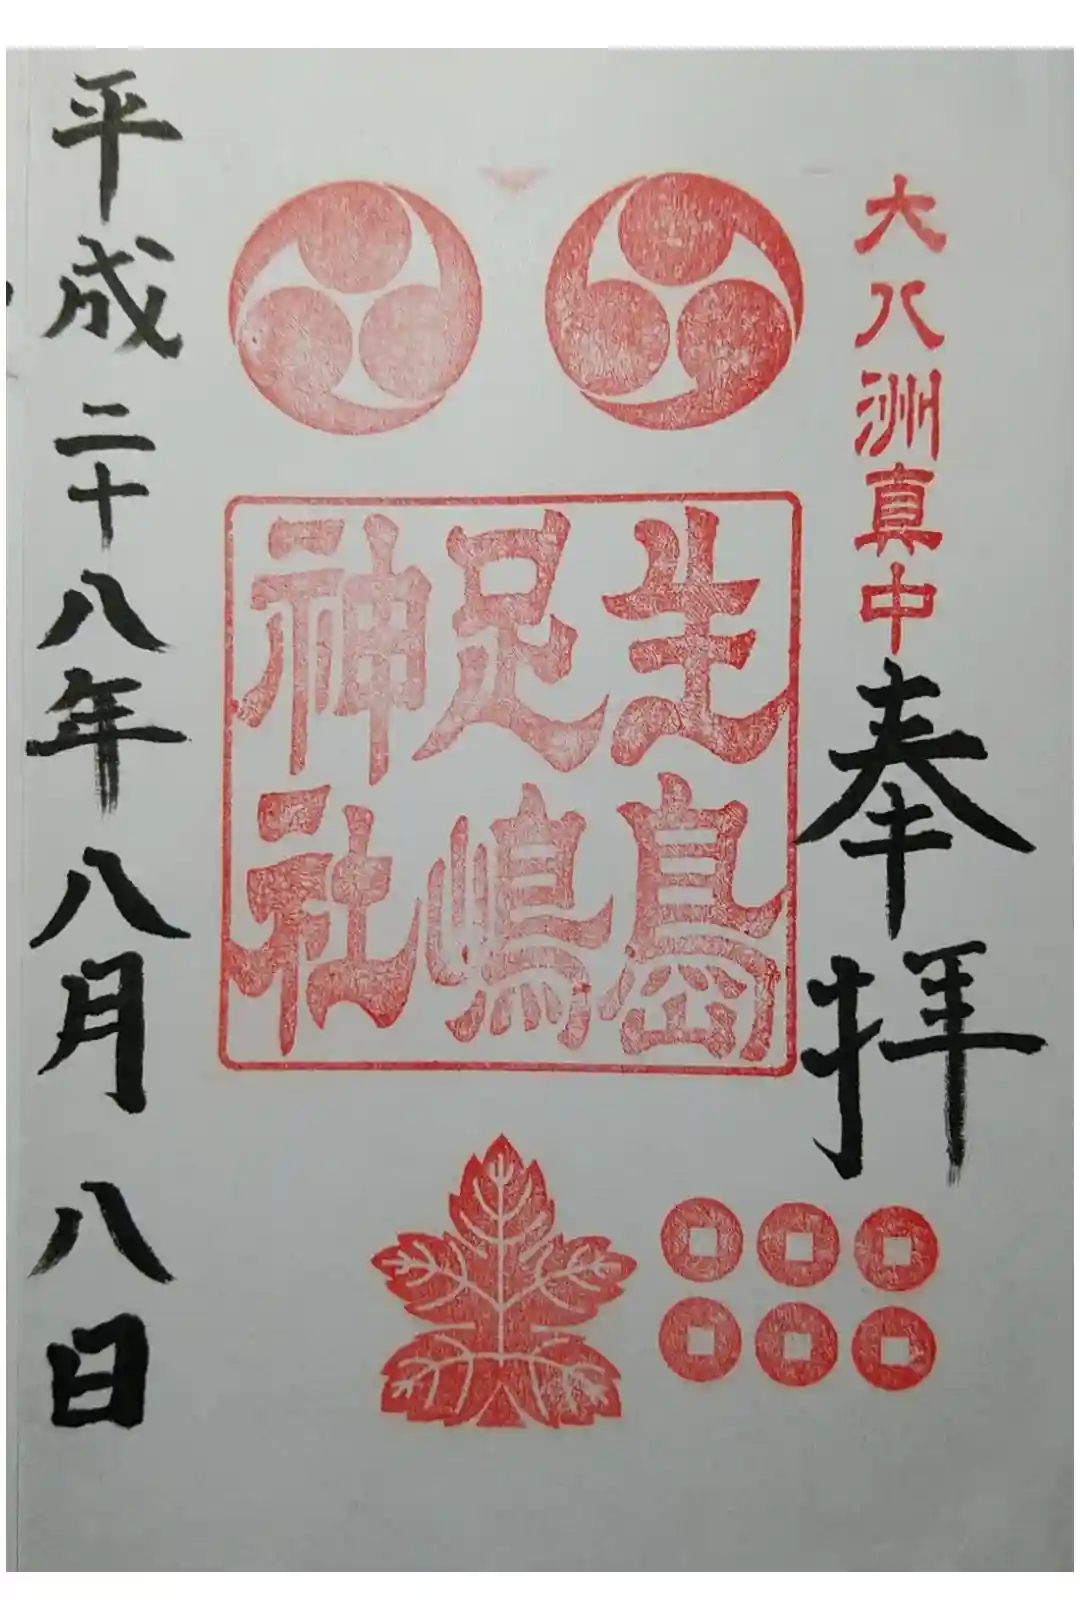 大八洲真中
奉拝
生島
足嶋
神社
平成二十八年八月八日